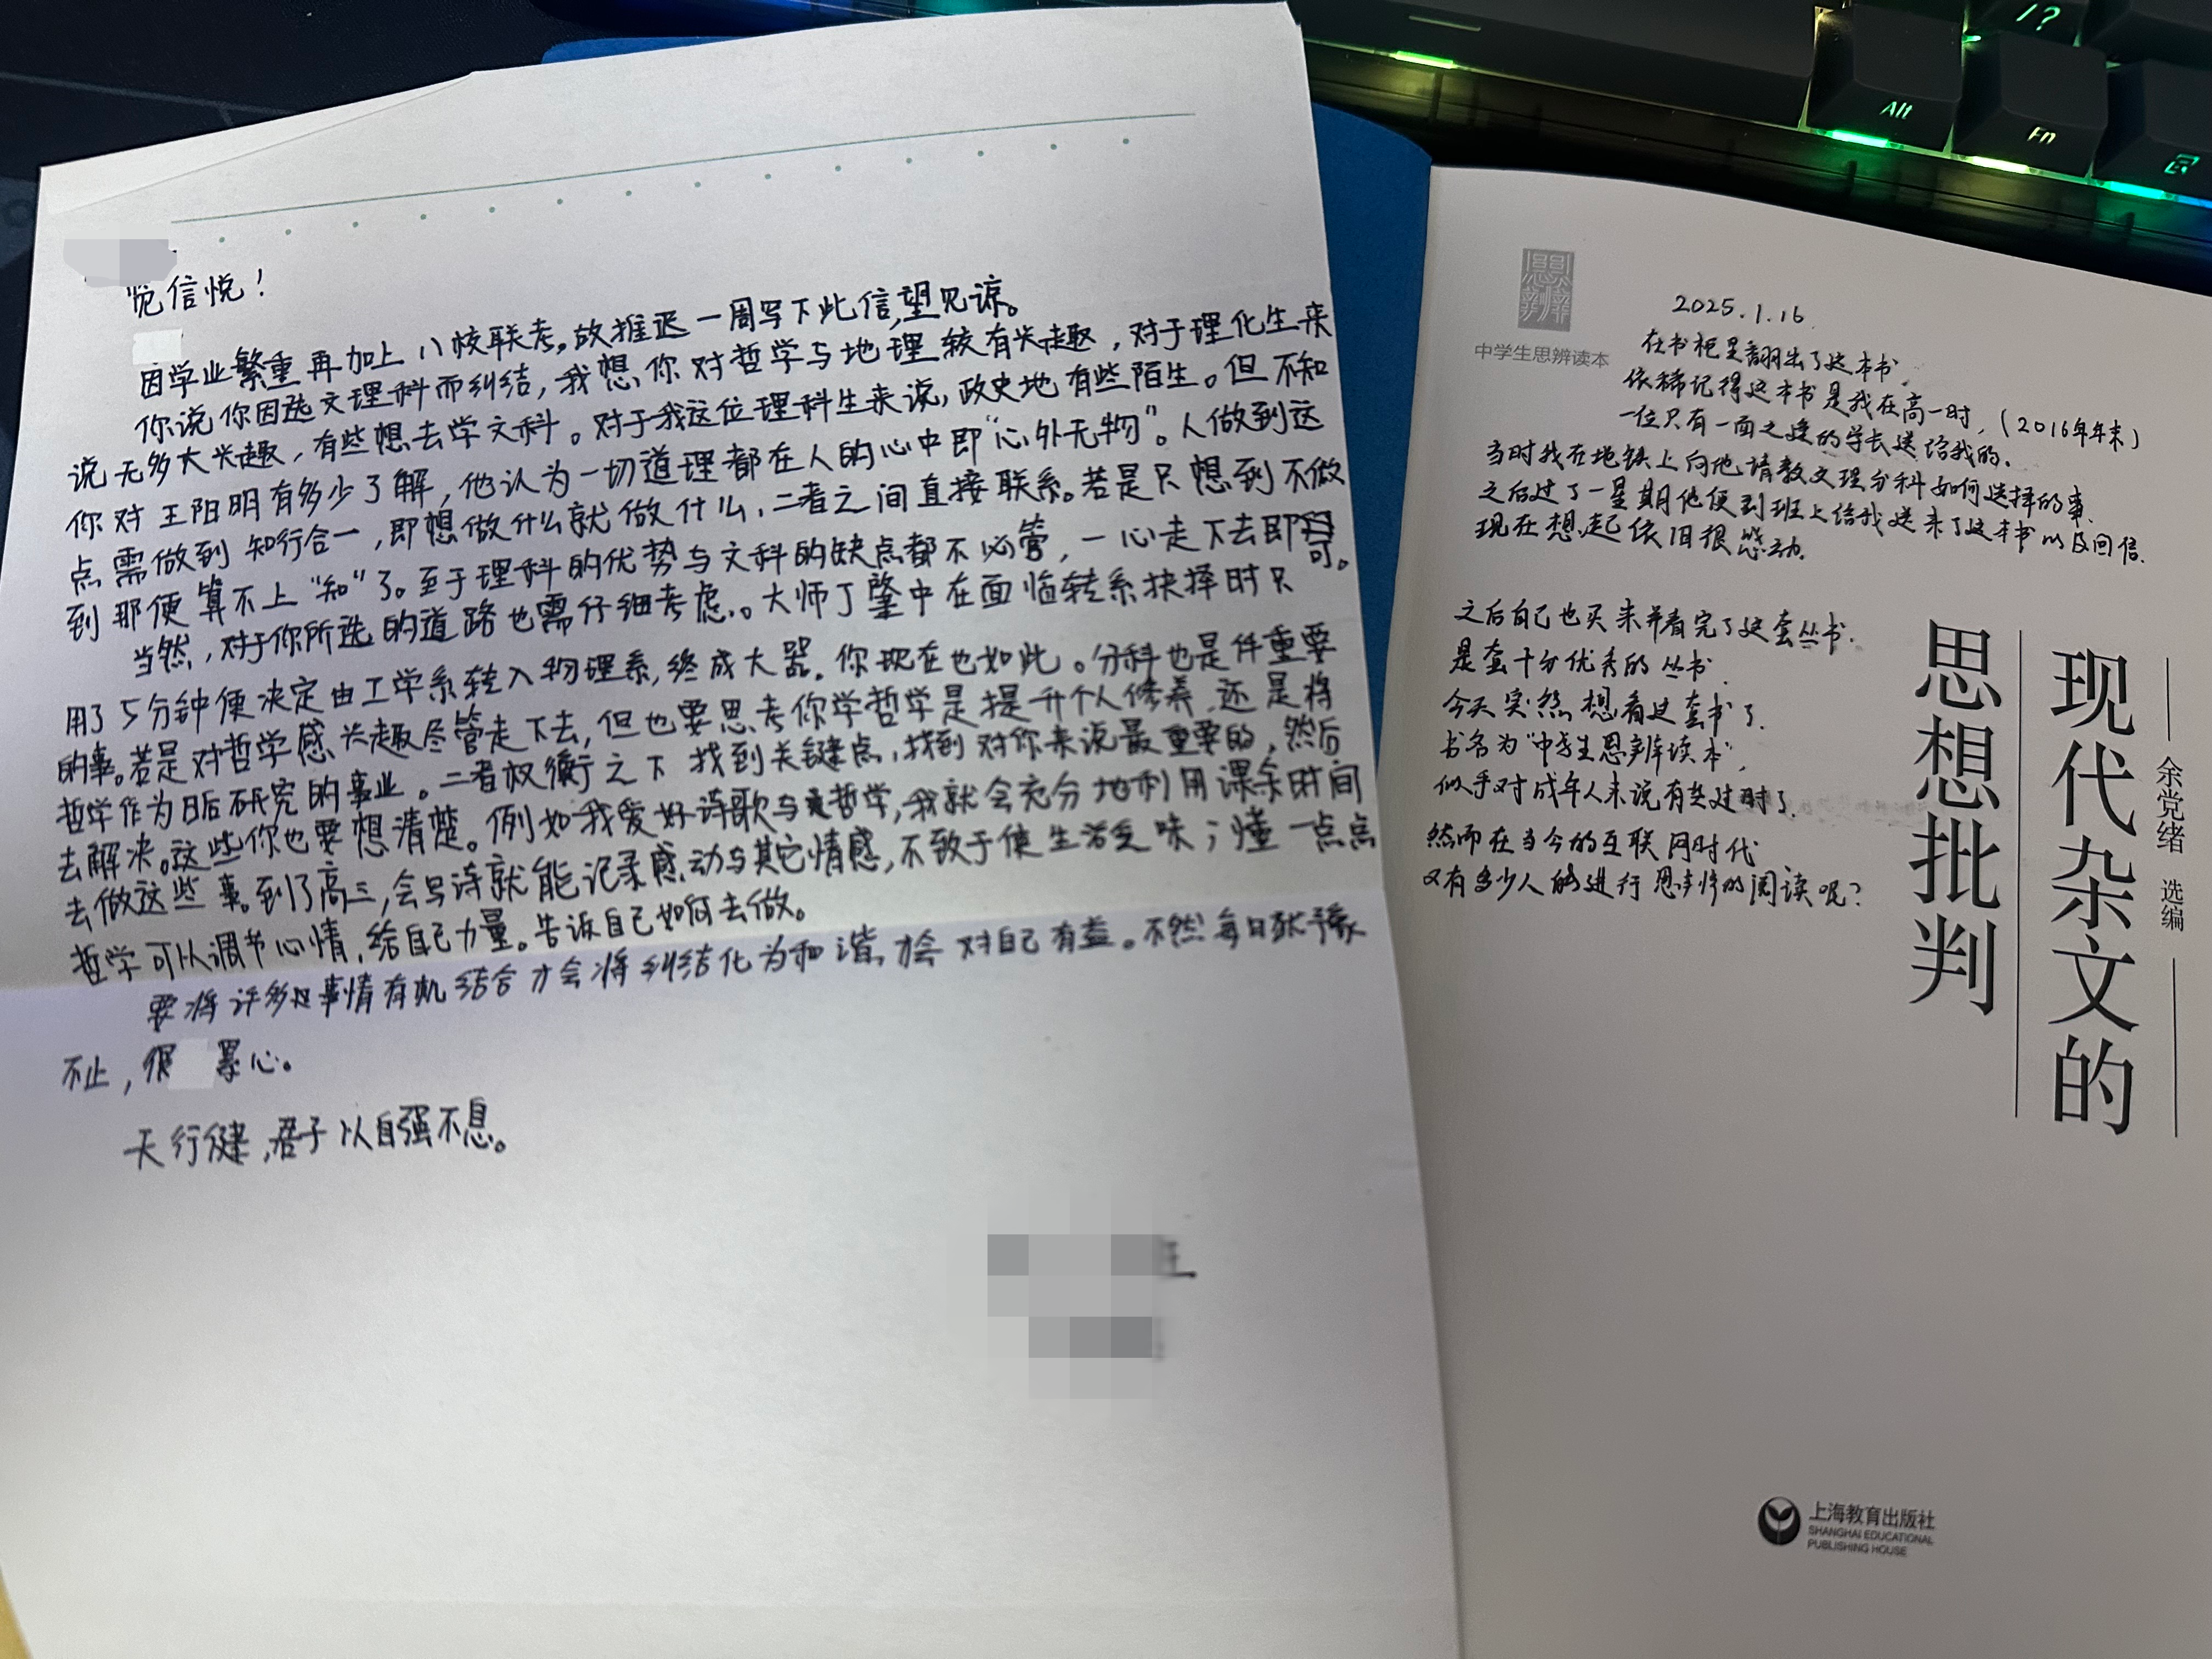 览信悦！
因学业繁重再加上八校联考。故推迟一周写下此信,望见谅。
你说你因选文理科而纠结，我想你对哲学与地理较有兴趣，对于理化生来
说无多大兴趣，有些想去学文科。对于我这位理科生来说，政史地有些陌生。但不知
你对王阳明有多少了解，他认为一切道理都在人的心中即“心外无物”。人做到这
点需做到知行合一，即想做什么就做什么，二者之间直接联系。若是只想到不做
到那便算不上“知”了。至于理科的优势与文科的缺点都不必管，一心走下去即可。
当然，对于你所选的道路也需仔细考虑。大师丁肇中在面临转系抉择时只
用了5分钟便决定由工学系转入物理系，终成大器。你现在也如此。分科也是件重要
的事。若是对哲学感兴趣尽管走下去，但也要思考你学哲学是提升个人修养，还是将
哲学作为日后研究的事业。二者权衡之下找到关键点，找到对你来说最重要的，然后
去解决。这些你也要想清楚。例如我爱好诗歌与哲学，我就会充分地利用课余时间
去做这些事。到了高三，会写诗就能记录感动与其它情感，不致于使生活乏味；懂一点点
哲学可以调节心情，给自己力量。告诉自己如何去做。
要将许多事情有机结合才会将纠结化为和谐，才会对自己有益。不然每日犹豫
不止，很累心。
天行健，君子以自强不息。
中学生思辨读本
2025.1.16.
在书柜里翻出了这本书.
依稀记得这本书是我在高一时，(2016年年末)
一位只有一面之缘的学长送给我的.
当时我在地铁上向他请教文理分科如何选择的事.
之后过了一星期他便到班上给我送来了这本书以及回信.
现在想起依旧很感动.
之后自己也买来并看完了这套丛书.
是套十分优秀的丛书.
今天突然想看这套书了.
书名为“中学生思辨读本”,
似乎对成年人来说有些过时了.
然而在当今的互联网时代
又有多少人能进行思辨的阅读呢？
现代杂文的
思想批判
余党绪 选编
上海教育出版社
SHANGHAI EDUCATIONAL
PUBLISHING HOUSE
/ ?
Alt
Fn